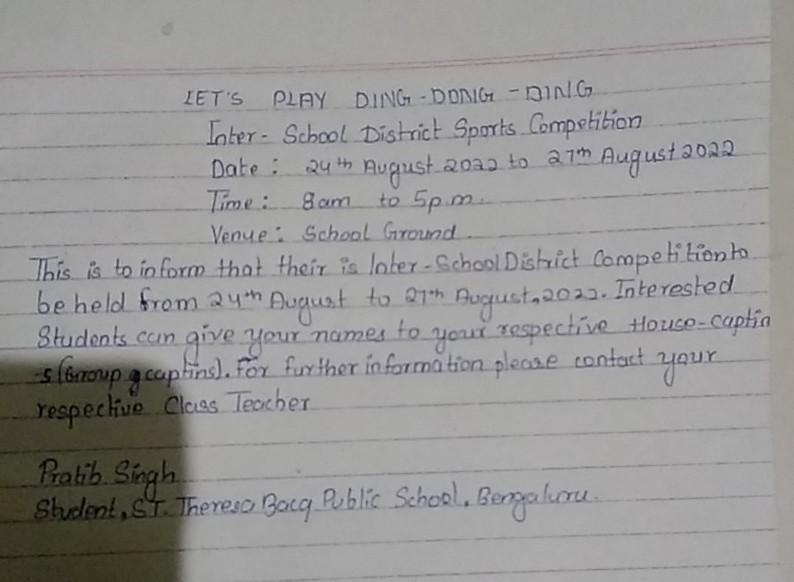 LET'S PLAY DING-DONG-DING
Inter-School District Sports Competition
Date: 24th August 2022 to 27th August 2022
Time: 8am to 5p.m.
Venue: School Ground
This is to inform that their is Inter-School District Competition to
be held from 24th August to 27th August, 2022. Interested
Students can give your names to your respective House-Captin
-s (Group captins). For further information please contact your
respective Class Teacher
Pratib Singh
Student, ST. Theresa Bacq Public School, Bengaluru.